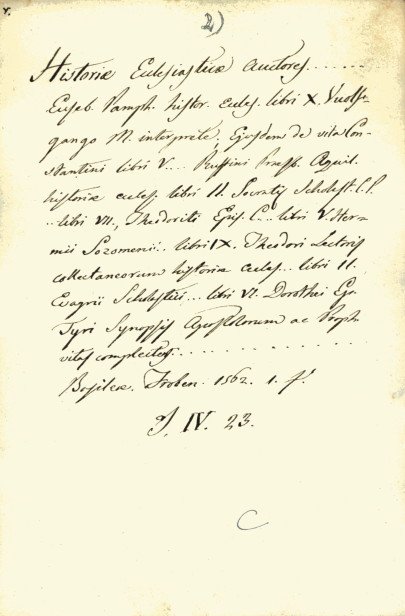 2)
Historiæ Eclesiasticæ Autores.......
Euseb. Pamph. histor. eccles. libri X. Vuolf-
gango M. interprete. Ejusdem de vita Con-
stantini libri V... Ruffini Presb. Aquil.
historiæ eccles. libri II. Socratis Scholast. C.P.
.. libri VII., Theodoriti Epis. C... libri V. Her-
mii Sozomenii.. libri IX. Theodori Lectoris
collectaneorum historiæ eccles... libri II.
Evagrii Scholastici... libri VI. Dorothei Epi.
Tyri Synopsis Apostolorum ac Proph.
vitas complectens. . . . . . . . . . . .
Basileæ. Froben. 1562. 1. f.
J. IV. 23.
C